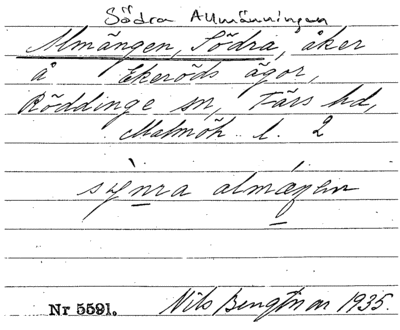 Södra Allmänningen
Almängen, Södra, åker
å Ekeröds ägor,
Röddinge sn, Färs hd,
Malmöh. l. 2
almágen
Nr 5591. Nils Bengtsson 1935.